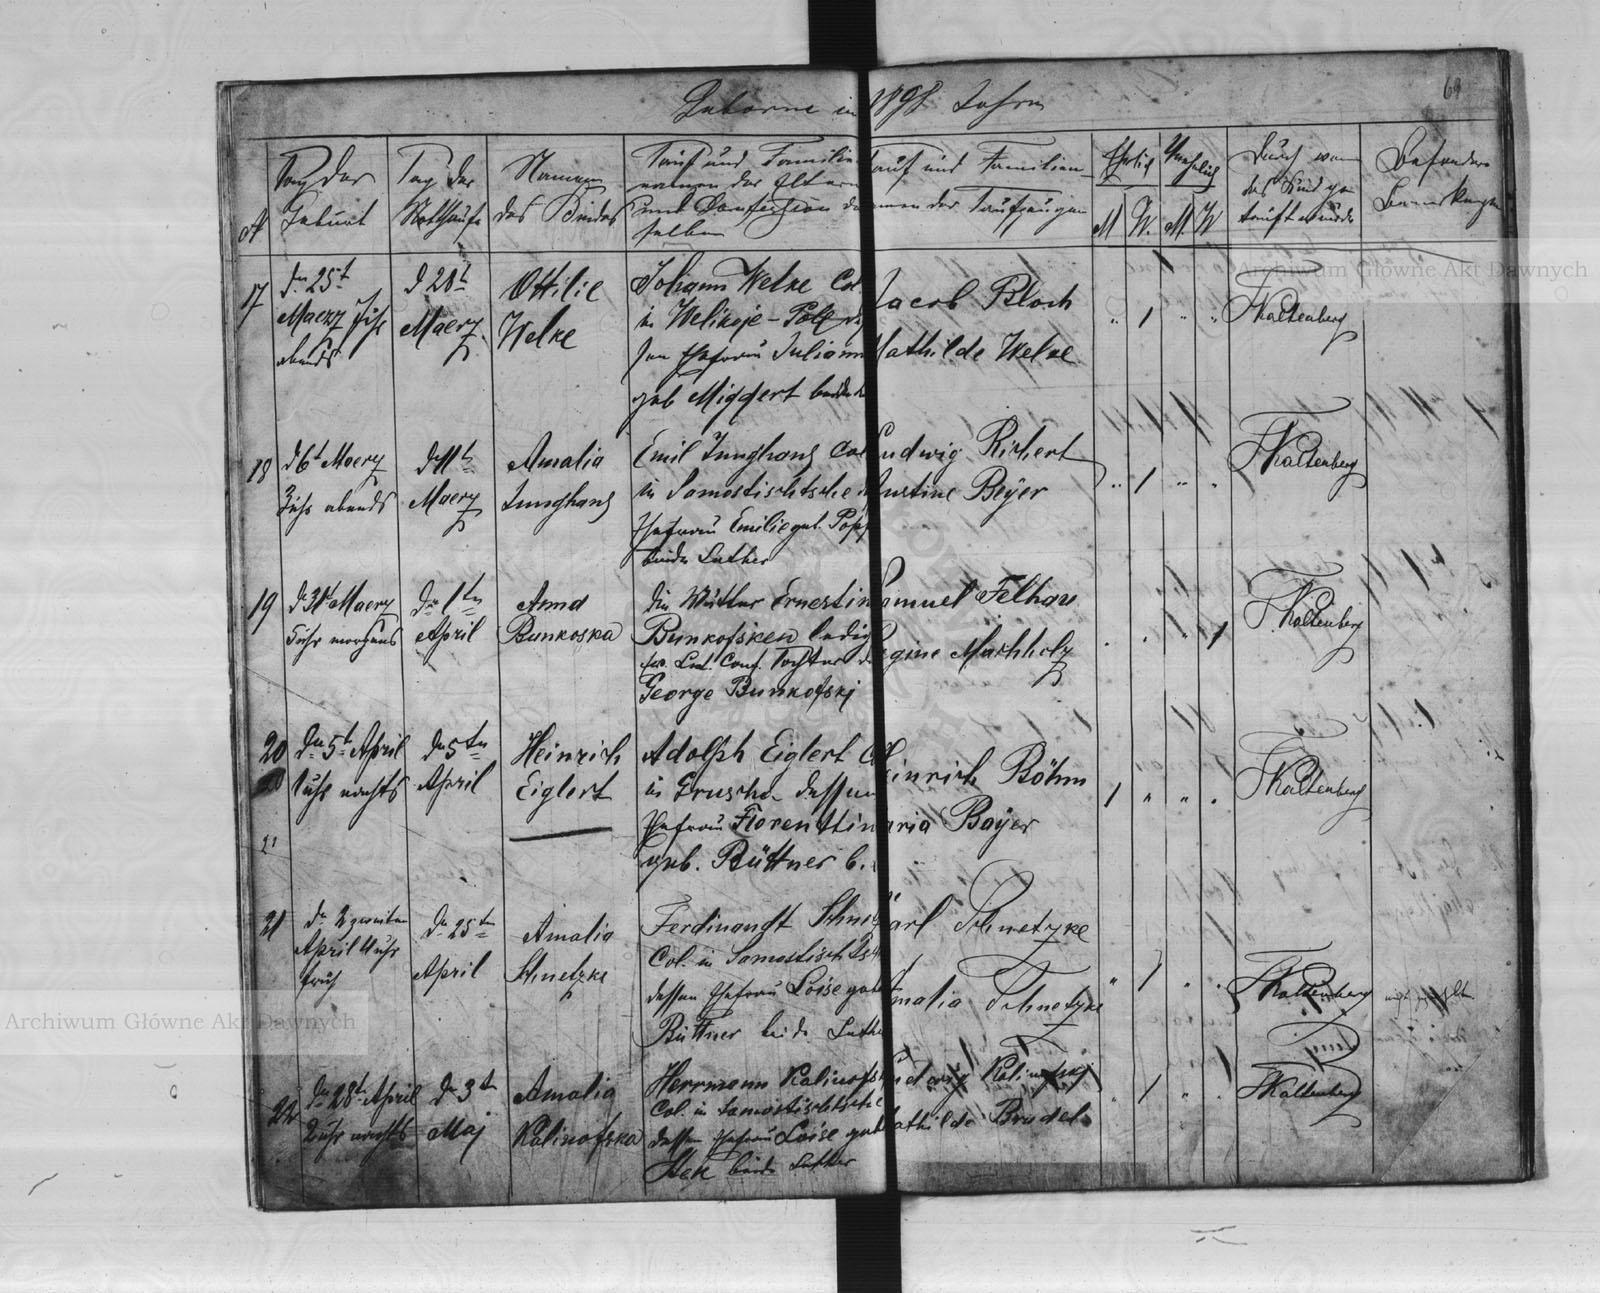 Geborne in 1898 Jahre
69
№
Tag der
Geburt
Tag der
Nothtaufe
Namen
des Kindes
Tauf und Familien
namen der Eltern
und Confession der
selben
Tauf und Familien
namen der Taufzeugen
Ehelich
M W.
Unehelich
M. W
Durch wem
das Kind ge
tauft wurde
Besondere
Bemerkungen
17
d. 25t
Maerz
abends
d 28t
Maerz
Ottilie
Welke
Johann Welke Col
in Welikoje-Pole
Ehefrau Juliann
geb Miggert beide
Jacob Bloch
Mathilde Welke
1
FKaltenberg
18
d 6t Maerz
Uhr abends
d 11t
Maerz
Amalia
Junghans
Emil Junghans Col
in Samostischtsche
Ehefrau Emilie geb. Popp
beide Luther
Ludwig Richert
Justine Beÿer
1
FKaltenberg
19
d 31t Maerz
Uhr morgens
Den 1ten
April
Anna
Bunkoska
Die Mutter Ernestin
Bunkofsken ledig
Conf. Tochter d
George Bunkofskj
Samuel Felhau
Regine Machholz
1
F.Kaltenberg
20
Den 5t April
Uhr nachts
Den 5ten
April
Heinrich
Eiglert
Adolph Eiglert C
in Gruscha dessen
Ehefrau Florenttin
geb. Büttner b.
Heinrich Böhm
Maria Baÿer
1
FKaltenberg
21
21
Den zweiten
April Uhr
früh
Den 25ten
April
Amalia
Schnetzke
Ferdinandt Schne
Col. in Samostischtsch
dessen Ehefrau Loise geb
Büttner beide Luthe
Carl Schnetzke
Amalia Schnetzke
1
FKaltenberg
22
Den 28t April
Uhr nachts
Den 3ten
Maj
Amalia
Kalinofska
Herrmann Kalinofsk
Col. in Samostischtsche
dessen Ehefrau Loise geb
Stek beide Luther
Ludwig Kalinofskj
Mathilde Brudel
1
FKaltenberg
Archiwum Główne Akt Dawnych
Archiwum Główne Akt Dawnych